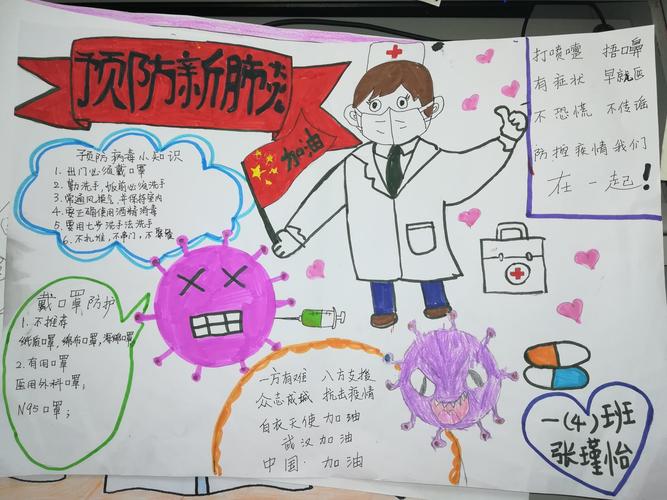 预防新肺炎
加油
打喷嚏 捂口鼻
有症状 早就医
不恐慌 不传谣
防控疫情我们
在一起!
预防病毒小知识
1. 出门必须戴口罩
2. 勤洗手,饭前必须洗手
3. 常通风换气,并保持室内
4. 要正确使用酒精消毒
5. 要用七步洗手法洗手
6. 不扎堆,不串门,不聚餐
戴口罩防护
1. 不推荐
纸质口罩,棉布口罩,海绵口罩
2. 有用口罩
医用外科口罩;
N95口罩;
一方有难 八方支援
众志成城 抗击疫情
白衣天使 加油
武汉加油
中国 加油
一(4)班
张瑾怡